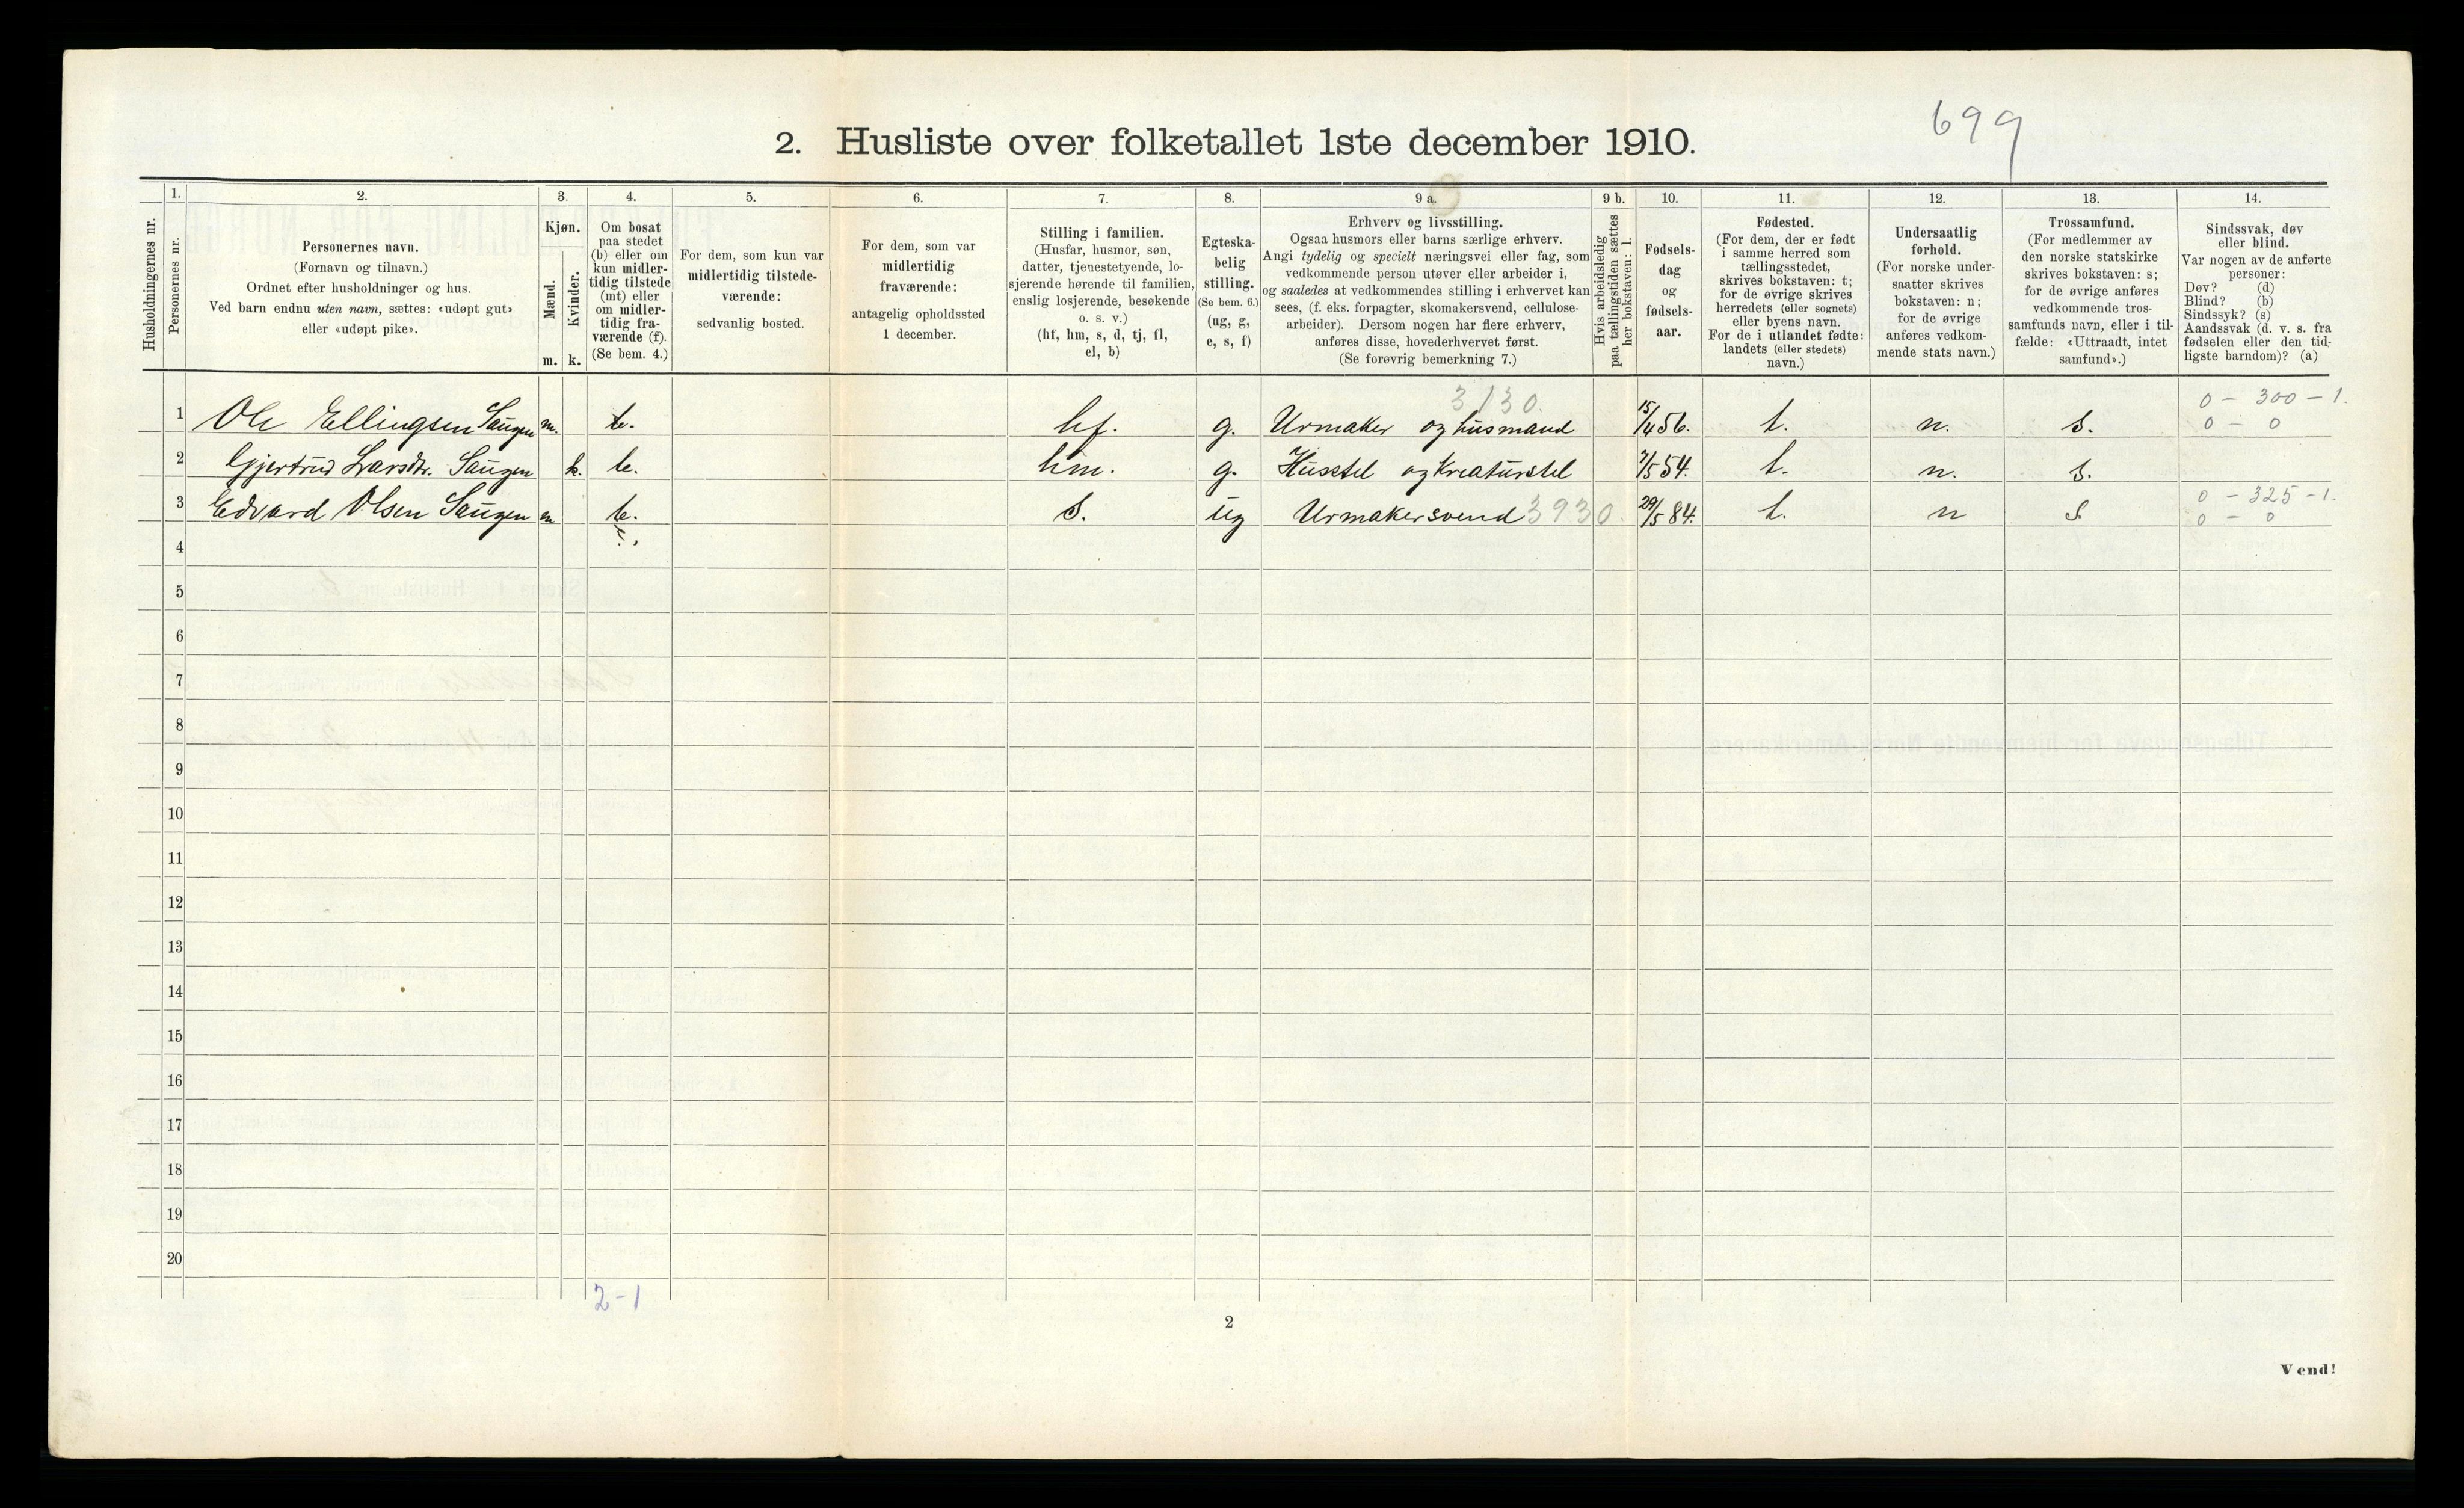 699
2. Husliste over folketallet 1ste december 1910.
Husholdningernes nr.
1.
Personernes nr.
2.
Personernes navn.
(Fornavn og tilnavn.)
Ordnet efter husholdninger og hus.
Ved barn endnu uten navn, sættes: «udøpt gut»
eller «udøpt pike».
3.
Kjøn.
Mænd.
m.
Kvinder.
k.
4.
Om bosat
paa stedet
(b) eller om
kun midler-
tidig tilstede
(mt) eller
om midler-
tidig fra-
værende (f).
(Se bem. 4.)
5.
For dem, som kun var
midlertidig tilstede-
værende:
sedvanlig bosted.
6.
For dem, som var
midlertidig
fraværende:
antagelig opholdssted
1 december.
7.
Stilling i familien.
(Husfar, husmor, søn,
datter, tjenestetyende, lo-
sjerende hørende til familien,
enslig losjerende, besøkende
o. s. v.)
(hf, hm, s, d, tj, fl,
el, b)
8.
Egteska-
belig
stilling.
(Se bem. 6.)
(ug, g,
e, s, f)
9 a.
Erhverv og livsstilling.
Ogsaa husmors eller barns særlige erhverv.
Angi tydelig og specielt næringsvei eller fag, som
vedkommende person utøver eller arbeider i,
og saaledes at vedkommendes stilling i erhvervet kan
sees, (f. eks. forpagter, skomakersvend, cellulose-
arbeider). Dersom nogen har flere erhverv,
anføres disse, hovederhvervet først.
(Se forøvrig bemerkning 7.)
9 b.
Hvis arbeidsledig
paa tællingstiden sættes
her bokstaven: l.
10.
Fødsels-
dag
og
fødsels-
aar.
11.
Fødested.
(For dem, der er født
i samme herred som
tællingsstedet,
skrives bokstaven: t;
for de øvrige skrives
herredets (eller sognets)
eller byens navn.
For de i utlandet fødte:
landets (eller stedets)
navn.)
12.
Undersaatlig
forhold.
(For norske under-
saatter skrives
bokstaven: n;
for de øvrige
anføres vedkom-
mende stats navn.)
13.
Trossamfund.
(For medlemmer av
den norske statskirke
skrives bokstaven: s;
for de øvrige anføres
vedkommende tros-
samfunds navn, eller i til-
fælde: «Uttraadt, intet
samfund».)
14.
Sindssvak, døv
eller blind.
Var nogen av de anførte
personer:
Døv? (d)
Blind? (b)
Sindssyk? (s)
Aandssvak (d. v. s. fra
fødselen eller den tid-
ligste barndom)? (a)
3130. 0 - 300 - 1.
1 Ole Ellingsen Saugen m. b. hf. g. Urmaker og husmand 15/4 56. t. n. s. 0 - 0
2 Gjertrud Larsdtr. Saugen k. b. hm. g. Husstel og Kreaturstel 7/5 54. t. n. s.
0 - 325 - 1.
3 Edvard Olsen Saugen m b. s. ug Urmakersvend 3930. 29/5 84. t. n s 0 - 0
4
5
6
7
8
9
10
11
12
13
14
15
16
17
18
19
20
2-1
2
Vend!